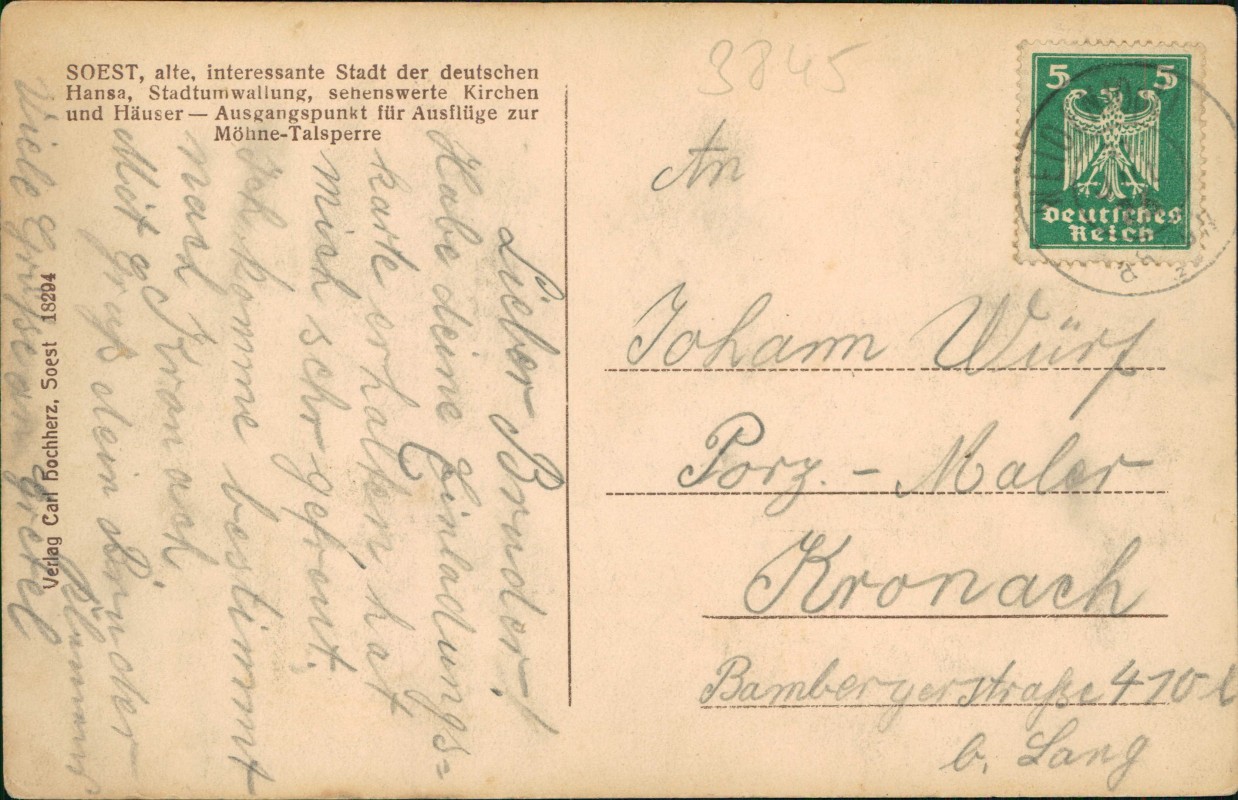 SOEST, alte, interessante Stadt der deutschen
Hansa, Stadtumwallung, sehenswerte Kirchen
und Häuser — Ausgangspunkt für Ausflüge zur
Möhne-Talsperre
Lieber Bruder!
Habe deine Einladungs=
karte erhalten, hat
mich sehr gefreut.
Ich komme bestimmt
nach Kronach
Mit Gruß dein Bruder
Viele Grüße von Gretel
Verlag Carl Hochherz, Soest 18294
3845
5 5
Deutsches
Reich
An
Johann Würf
Porz. - Maler
Kronach
Bambergerstraße 410
b. Lang